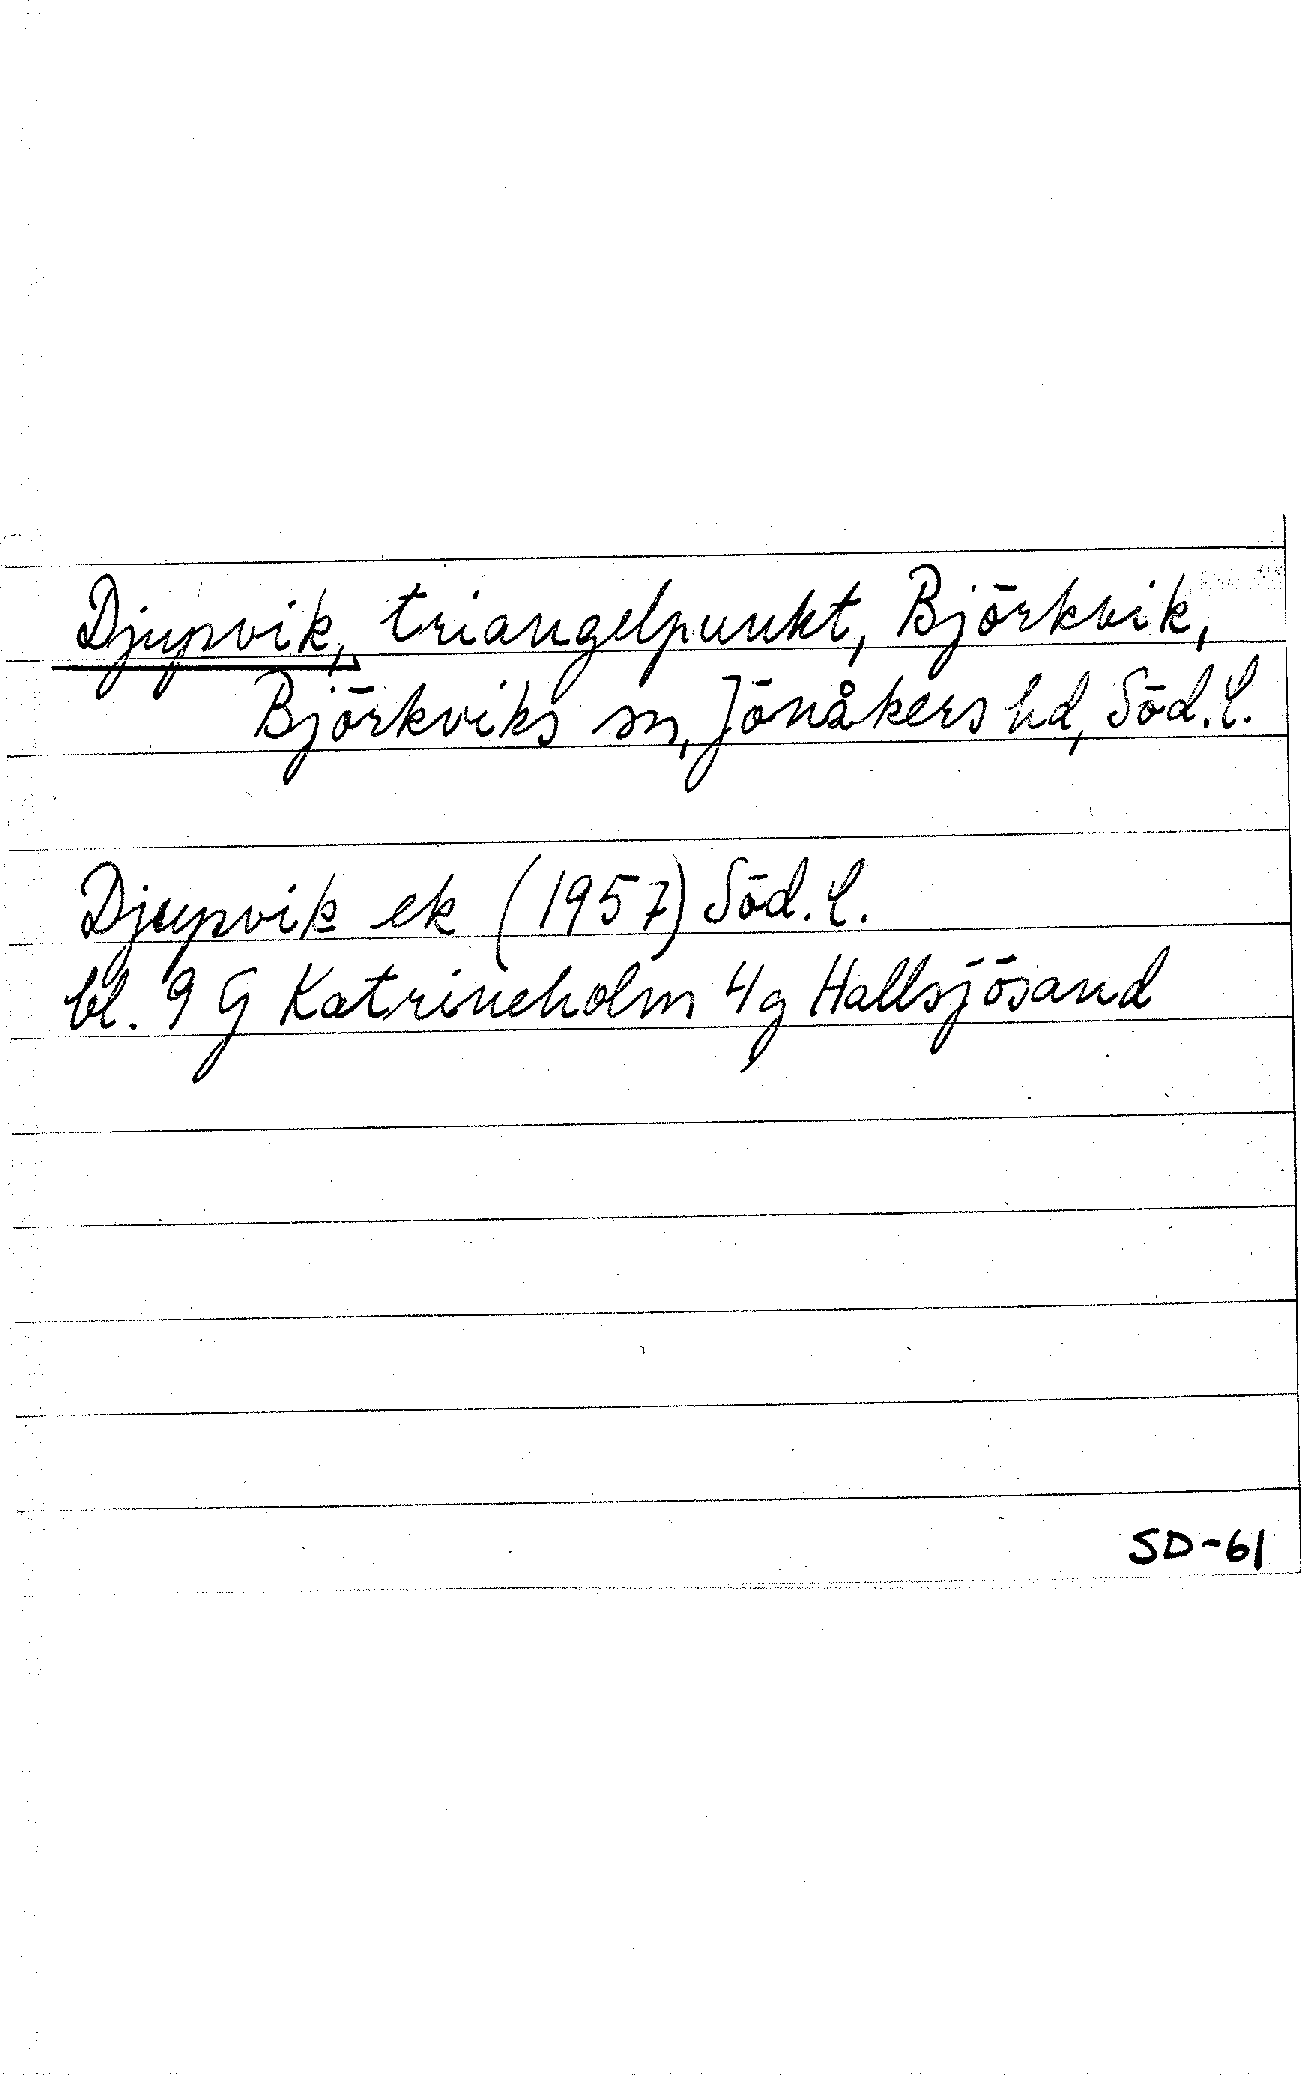 Djupvik, triangelpunkt, Björkvik,
Björkviks sn, Jönåkers hd, Söd. l.
Djupvik ek (1957) Söd. l.
bl. 9 G Katrineholm 4g Hallsjösand
SD-61